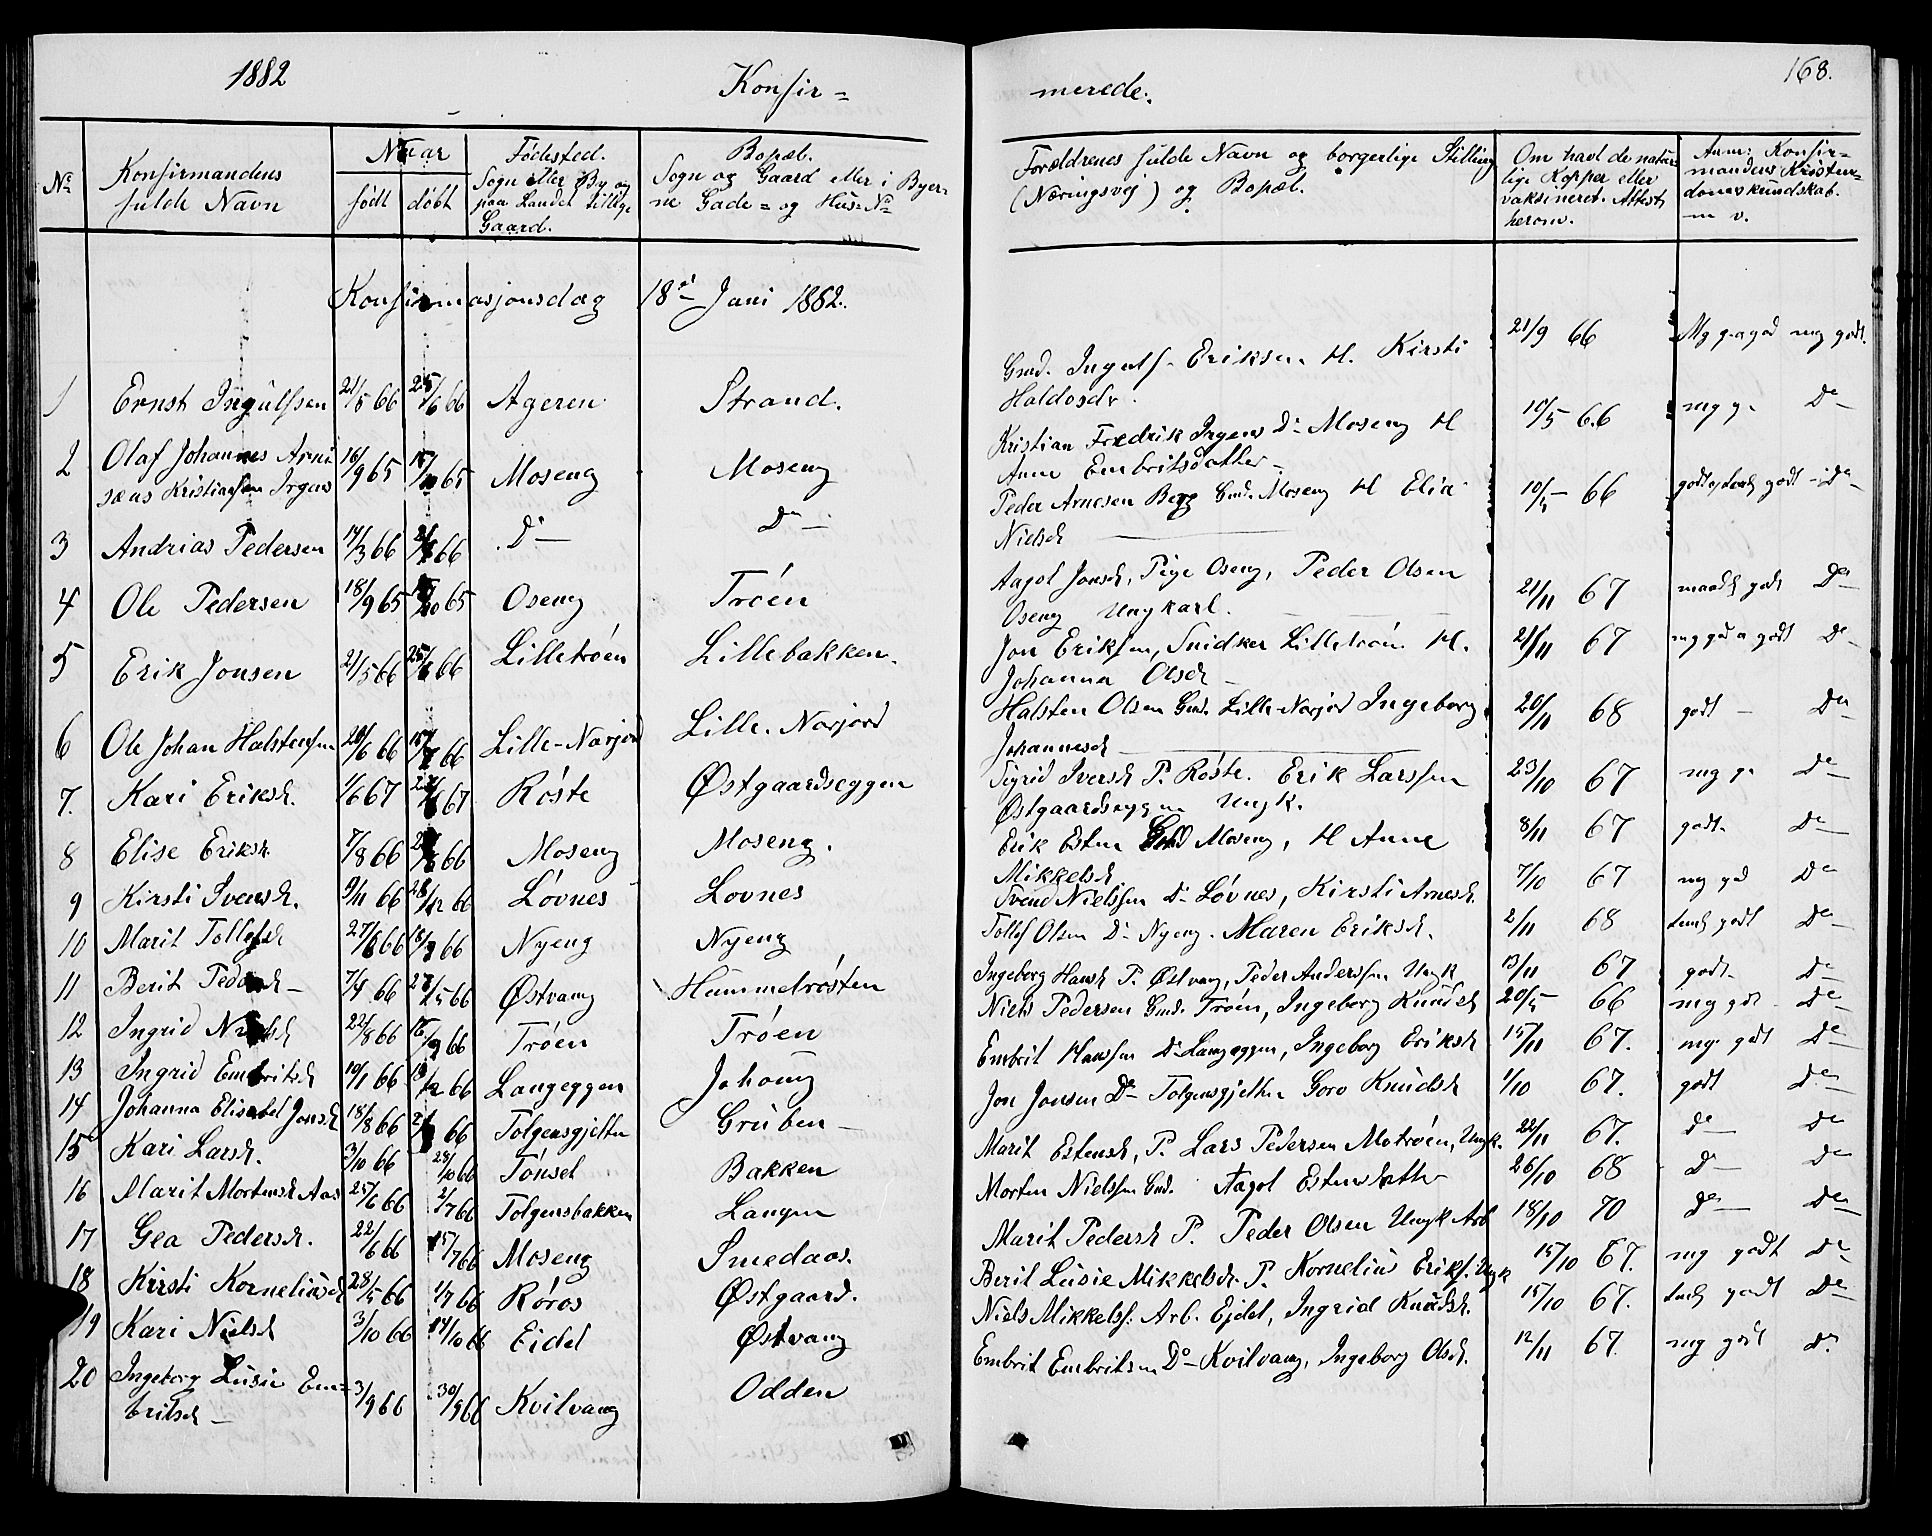 1882
Konfir=
merede.
168.
No
Konfirmandens
fulde Navn
Naar
født
døbt
Fødested.
Sogn eller By og
paa Landet tillige
Gaard.
Bopæl.
Sogn og Gaard eller i Byer-
ne Gade= og Hus-No
Forældrenes fulde Navn og borgerlige Stilling
(Næringsvej) og Bopæl.
Om havt de natur-
lige Kopper eller
vaksineret. Attest
herom.
Anm: Konfir=
mandens Kristen-
domskundskab.
m v.
Konfirmasjonsdag 18de Juni 1882.
1 Ernst Ingulfsen 21/5 66 25/6 66 Ageren Strand. Gmd. Ingulf Eriksen H. Kirsti 21/9 66 Mg g a god mg godt.
Haldosdr.
2 Olaf Johannes Arni 16/9 65 65 Moseng Moseng Kristian Fredrik Irgens Do Moseng H 10/5 66 mg g. Do
sæus Kristiansen Irgens Anne Embritsdatter
3 Andrias Pedersen 14/3 66 66 Do Do Peder Arnesen Berg Gmd. Moseng H Elia 10/5 66 godt Do
Nielsd
4 Ole Pedersen 18/9 65 65 Oseng Trøen Aagot Jonsd, Pige Oseng, Peder Olsen 21/11 67 maadl godt Do
Oseng Ungkarl.
5 Erik Jonsen 21/5 66 66 Lilletrøen Lillebakken. Jon Eriksen, Snidker Lilletrøen H. 21/11 67 Do
Johanna Olsd
6 Ole Johan Halstensen 66 66 Lille-Narjord Lille-Narjord Halsten Olsen Gmd. Lille-Narjord Ingeborg 20/11 68 godt Do
Johannesd
7. Kari Eriksd. 1/6 67 67 Røste Østgaardseggen Sigrid Iversd P. Røste. Erik Larssen 23/10 67 mg g. Do
Østgaardseggen Ungk.
8 Elise Eriksd. 7/8 66 66 Moseng Moseng. Erik Esten Gmd Moseng, H Anne 8/11 67 godt Do
Mikkelsd
9 Kirsti Svensd. 9/11 66 28/12 66 Løvnes Lovnes Svend Nielssen Do Løvnes, Kirsti Arnesd. 7/10 67 mg god Do
10 Marit Tollefsd 66 66 Nyeng Nyeng Tollef Olsen Do Nyeng. Maren Eriksd. 2/11 68 temd godt Do
11 Berit Pedersd 7/4 66 27/5 66 Østvang Hummelrøsten Ingeborg Hansd P. Østvang, Peder Anderssen Ungk 13/11 67 godt Do
12 Ingrid Nielsd 22/8 66 16/9 66 Trøen Trøen Niels Pedersen Gmd. Trøen, Ingeborg Knudsd 20/5 66 mg godt Do
13 Ingrid Embritsd 10/1 66 66 Langeggen Johong Embrit Hanssen Do Langeggen, Ingeborg Eriksd 15/11 67. mg godt Do
14 Johanna Elisabet Jonsd 18/8 66 66 Tolgensgjelten Gruben Jon Jonsen Do Tolgensgjelten Goro Knudsd 1/10 67. godt Do
15 Kari Larsd. 3/10 66 28/10 66 Tønset Bakken Marit Estensd, P. Lars Pedersen Motrøen, Ungk. 22/11 67. do Do
16 Marit Mortensd Aas 25/6 66 2/7 66 Tolgensbakken Langen Morten Nielssen Gmd. Aagot Estensdatter 26/10 68 do Do
17 Gea Pedersd. 22/6 66 15/7 66 Moseng Smedaas. Marit Pedersd P. Peder Olsen Ungk Arb 18/10 70 do Do
18 Kirsti Korneliusd 28/5 66 1/7 66 Røros Østgaard. Berit Lusie Mikkelsd. P. Kornelius Eriks. Ungk 15/10 67. mg godt Do
19 Kari Nielsd 3/10 66 14/10 66 Eidet Østvang Niels Mikkelss: Arb. Ejdet, Ingrid Knudsd. 15/10 67. temd godt Do
20 Ingeborg Lusie Em= 3/9 66 30/9 66 Kvilvang Odden Embrit Embritsen Do Kvilvang, Ingeborg Olsd. 12/11 67. mg godt Do
britsd